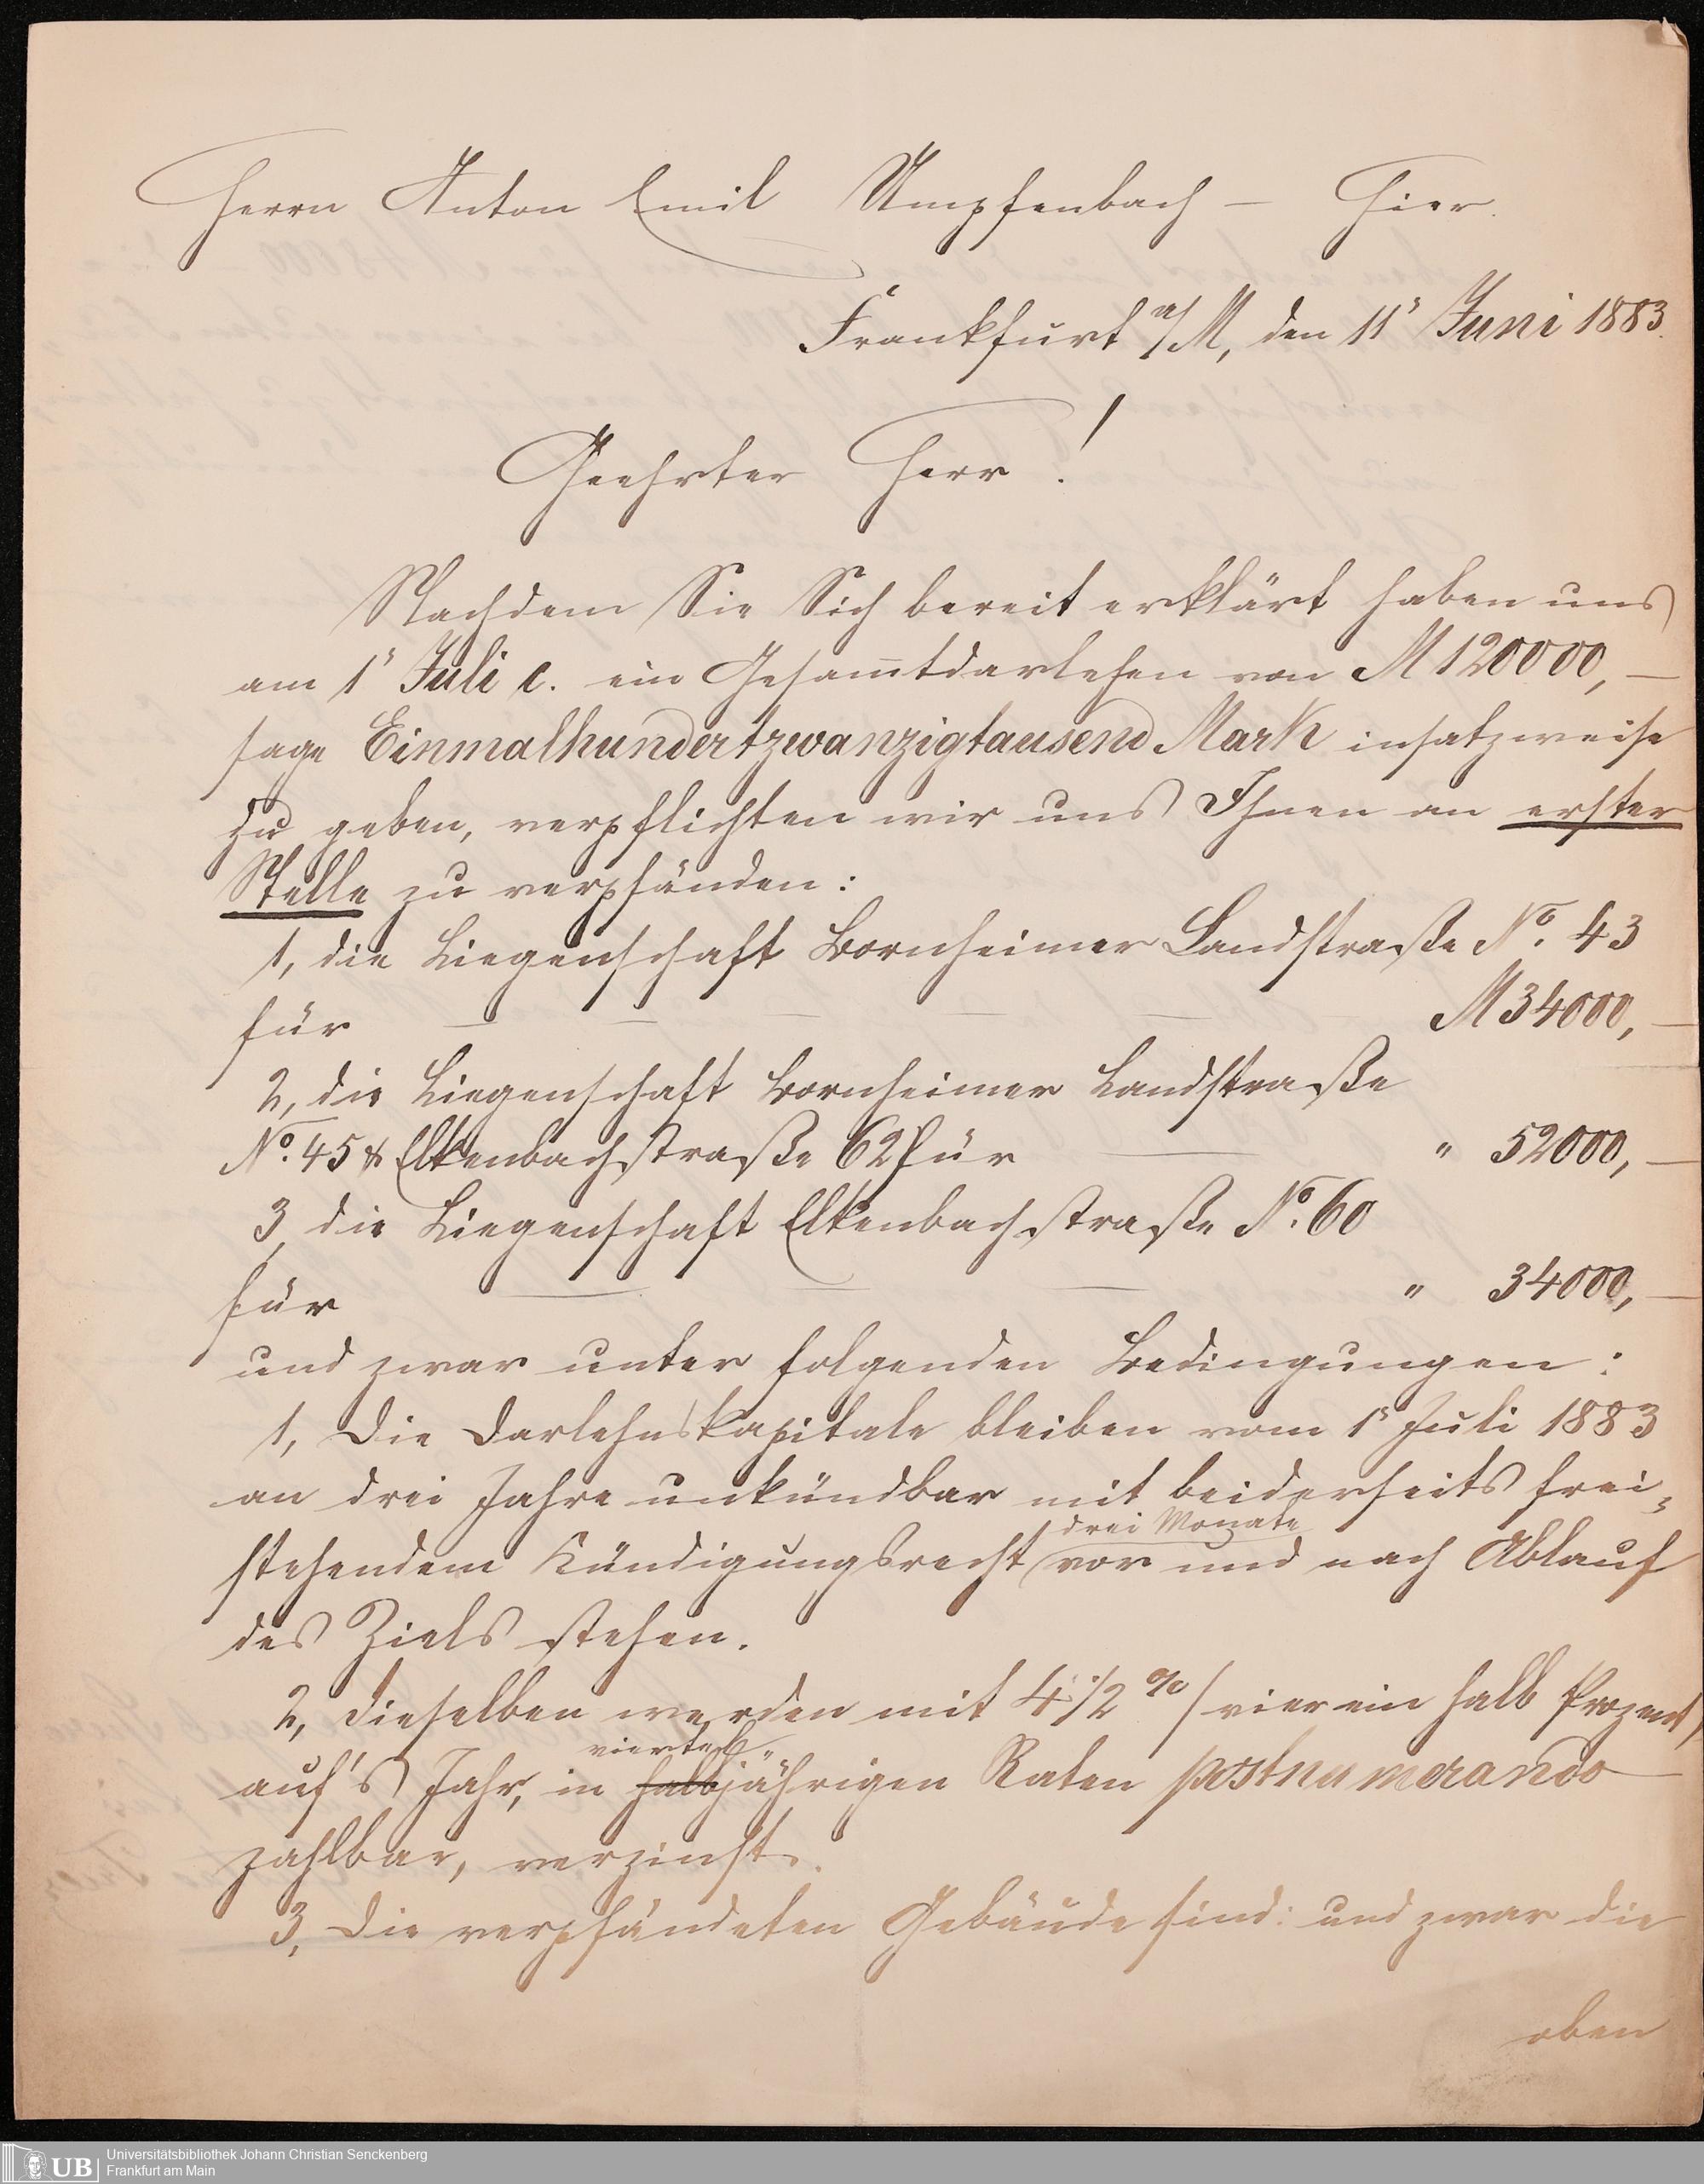 Herrn Anton Emil Umpfenbach — Hier.
Frankfurt a/M, den 11" Juni 1883.
Geehrter Herr!
Nachdem Sie Sich bereit erklärt haben uns
am 1" Juli c. ein Gesam̅tdarlehen von M 120000,—
sage Einmalhundertzwanzigtausend Mark insatzweise
zu geben, verpflichten wir uns Ihnen an erster
Stelle zu verpfänden:
1, die Liegenschaft Bornheimer Landstraße No. 43
für — — — — — M 34000,—
2, die Liegenschaft Bornheimer Landstraße
No. 45 & Elkenbachstraße 62 für — " 52000,—
3, die Liegenschaft Elkenbachstraße No. 60
für — — — " 34000,—
und zwar unter folgenden Bedingungen:
1, Die Darlehnskapitale bleiben vom 1" Juli 1883
an drei Jahre unkündbar mit beiderseits frei-
drei Monate
stehendem Kündigungsrecht vor und nach Ablauf
des Ziels stehen.
2, Dieselben werden mit 4 1/2 % / vier ein halb Prozent/
viertel
auf's Jahr, in halbjährigen Raten postnumerando
zahlbar, verzinst.
3, Die verpfändeten Gebäude sind: und zwar die
oben
UB
Universitätsbibliothek Johann Christian Senckenberg
Frankfurt am Main